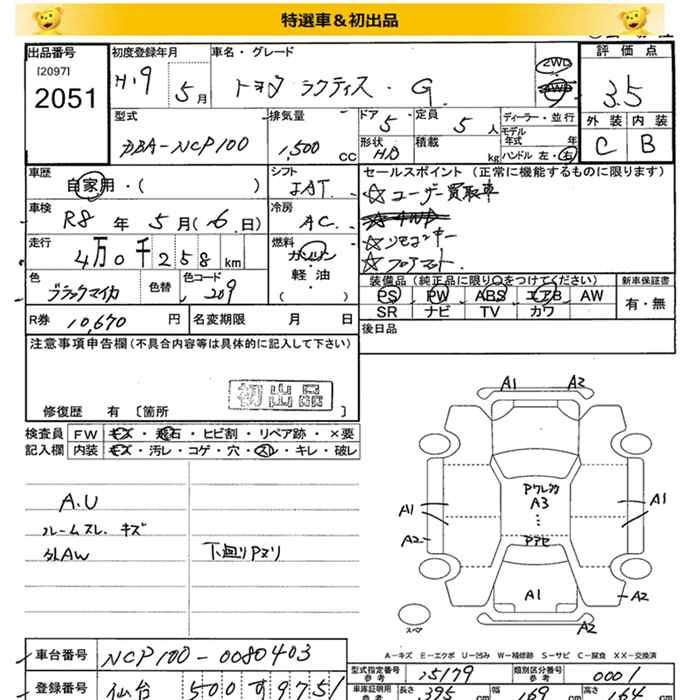 特選車&初出品
出品番号
[2097]
2051
初度登録年月
H19 5月
車名・グレード
トヨタ ラクティス・G
2WD
4WD
評価点
3.5
外装 内装
C B
型式
DBA-NCP100
排気量
1,500 CC
ドア 5 定員 5 人
形状 HB 積載 kg
ディーラー・並行
モデル年式 年
ハンドル 左・右
車歴
自家用・( )
シフト
IAT
車検
R8年5月(6日)
冷房
AC
走行
4万0千258km
燃料
ガソリン
軽・油
( )
色
ブラックマイカ
色替
色コード
209
セールスポイント(正常に機能するものに限ります)
☆ユーザー買取車
☆4WD
☆リモコンキー
☆フロアマット
装備品(純正品に限り○をつけてください)
PS PW ABS エアB AW
SR ナビ TV カワ
新車保証書
有・無
R券 10,670円
名変期限 月 日
後日品
注意事項申告欄(不具合内容等は具体的に記入して下さい)
初出品
修復歴 有 [箇所 ]
検査員 FW キズ・飛石・ヒビ割・リペア跡・×要
記入欄 内装 キズ・汚レ・コゲ・穴・スレ・キレ・破レ
A.U
ルームスレ、キズ
外AW
下廻りPヌリ
A1 A2
A1
A2
Pウレカ
A3
Pアセ
A1
A1
A2
A2
スペア
A-キズ E-エクボ U-凹み W-補修跡 S-サビ C-腐食 XX-交換済
車台番号 NCP100-0080403
登録番号 仙台 500す9751
型式指定番号 参考 15179
類別区分番号 参考 0001
車庫証明用 参考 長さ 395 cm 幅 169 cm 高さ 164 cm